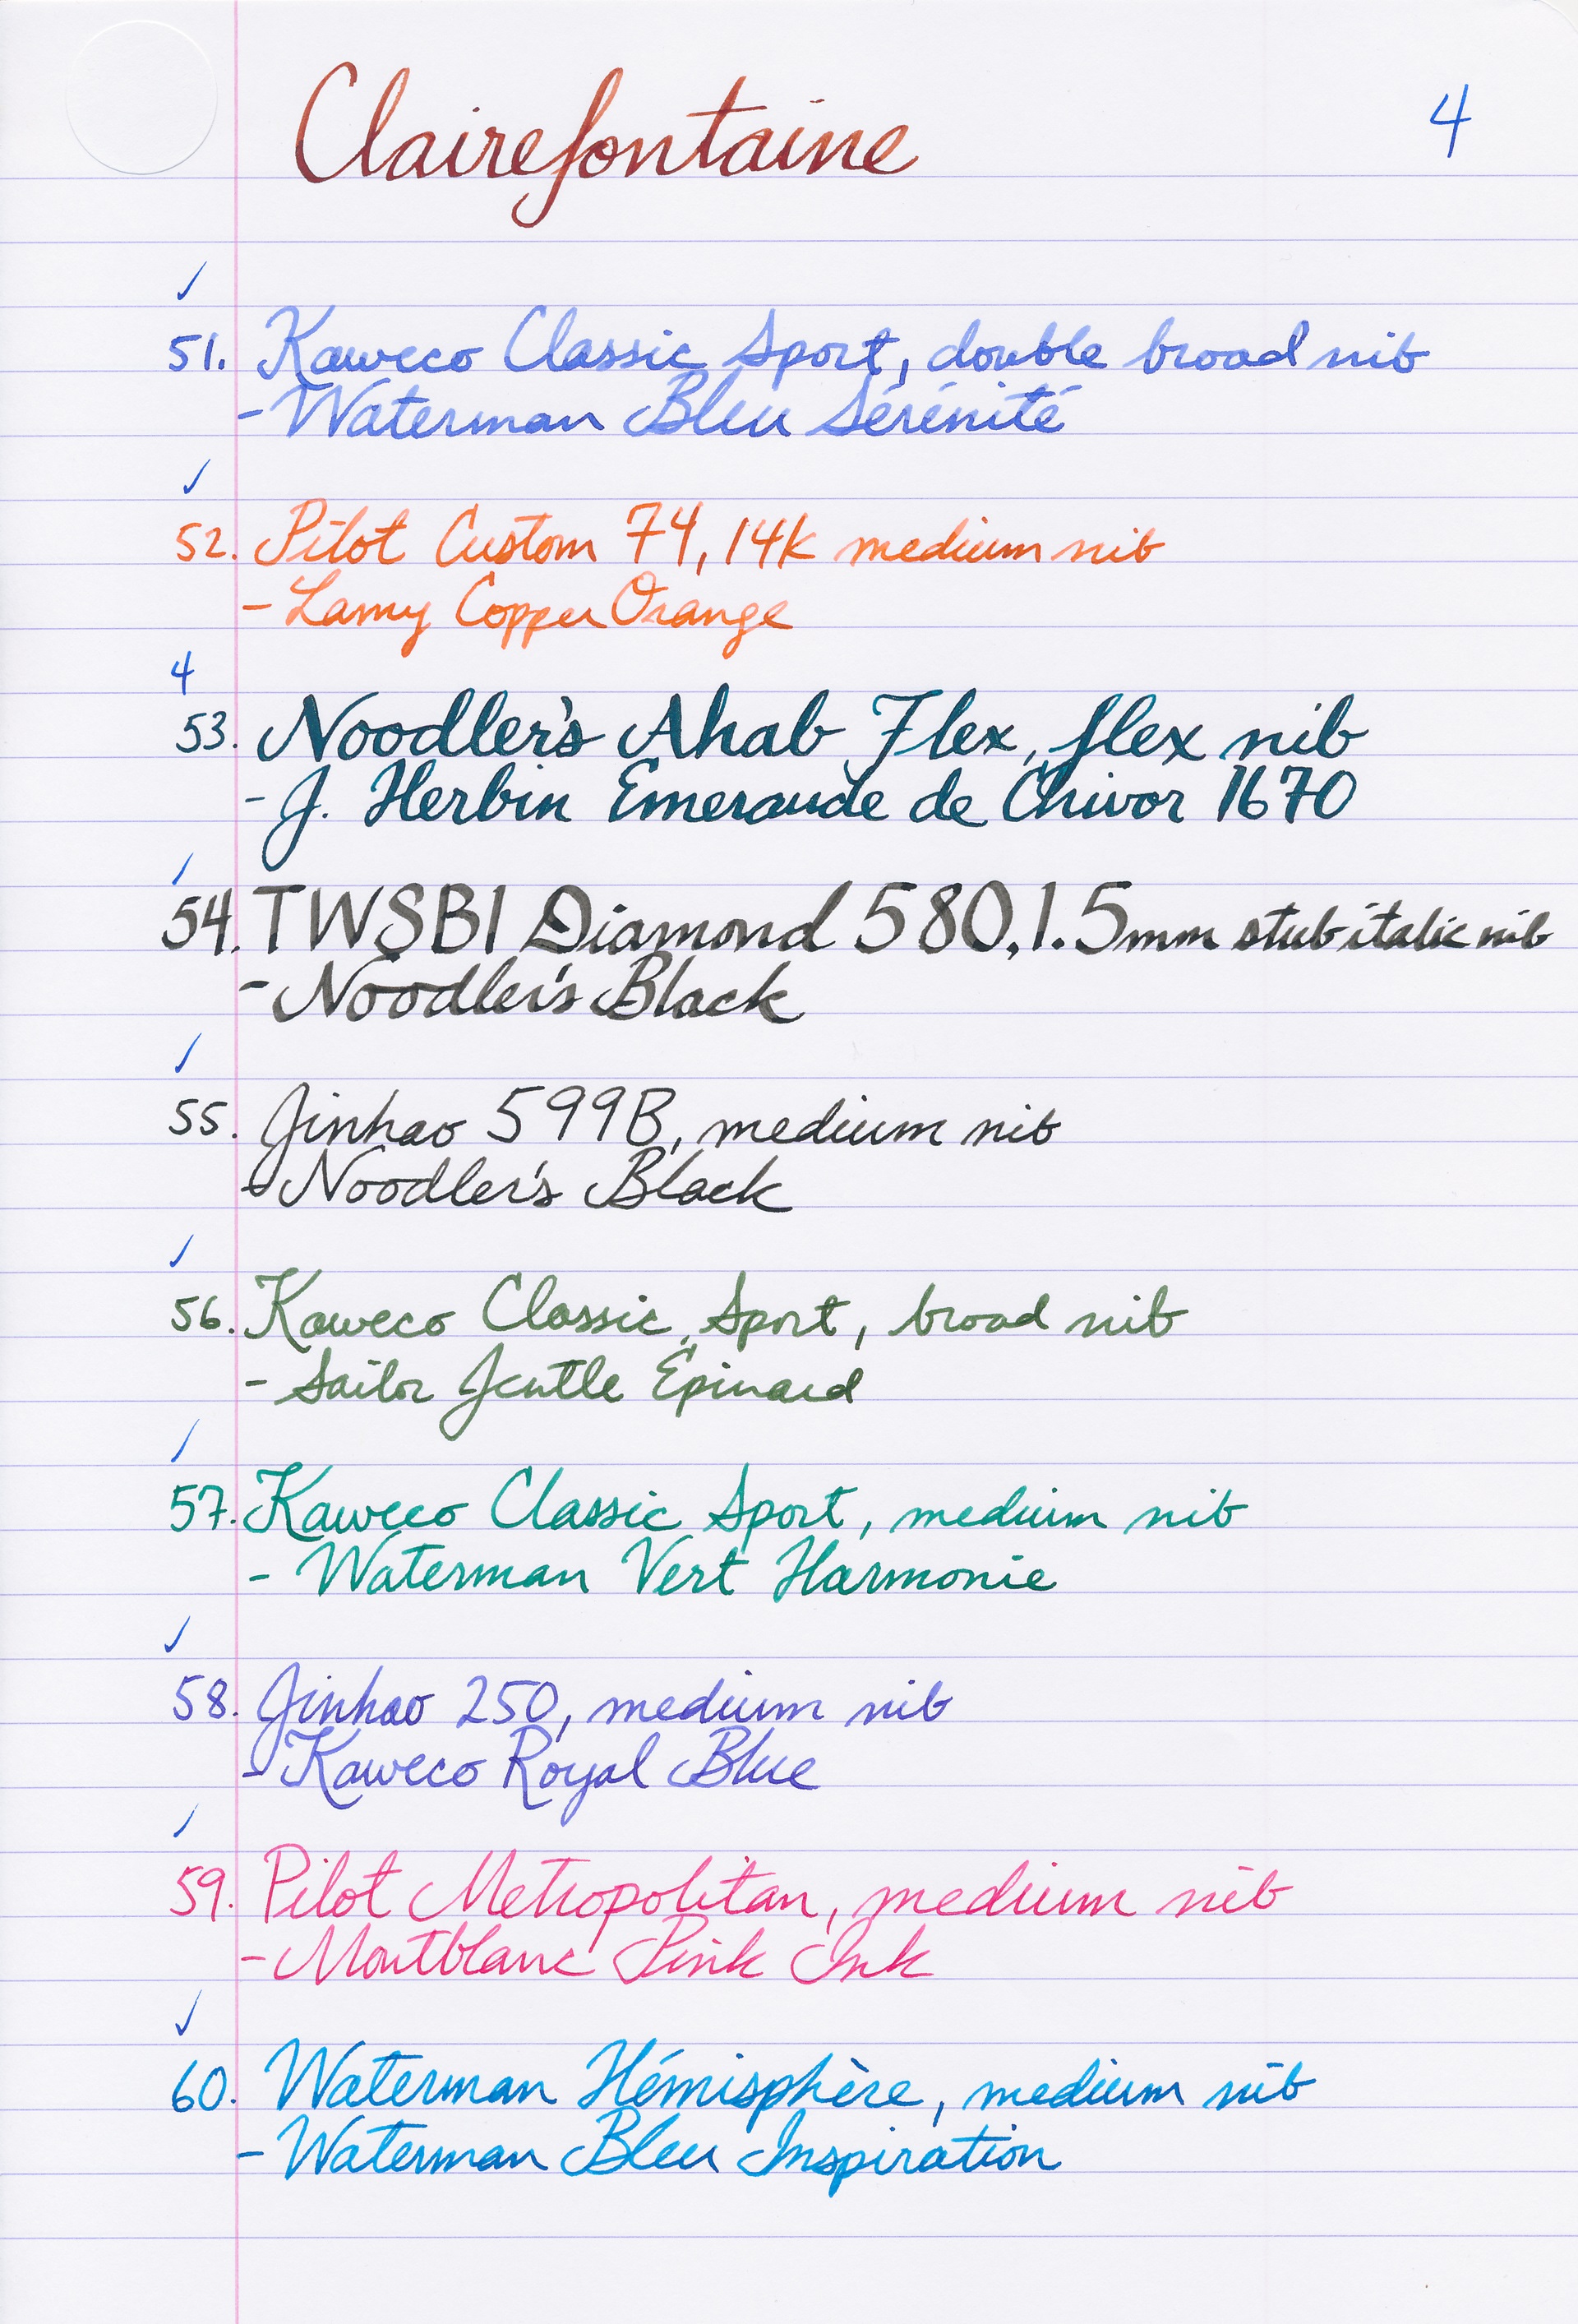 Clairefontaine
4
✓
51. Kaweco Classic Sport, double broad nib
- Waterman Bleu Sérénité
✓
52. Pilot Custom 74, 14k medium nib
- Lamy Copper Orange
4
53. Noodler's Ahab Flex, flex nib
- J. Herbin Emeraude de Chivor 1670
✓
54. TWSBI Diamond 580, 1.5mm stub italic nib
- Noodler's Black
✓
55. Jinhao 599B, medium nib
- Noodler's Black
✓
56. Kaweco Classic Sport, broad nib
- Sailor Jentle Épinard
✓
57. Kaweco Classic Sport, medium nib
- Waterman Vert Harmonie
✓
58. Jinhao 250, medium nib
- Kaweco Royal Blue
✓
59. Pilot Metropolitan, medium nib
- Montblanc Pink Ink
✓
60. Waterman Hémisphère, medium nib
- Waterman Bleu Inspiration